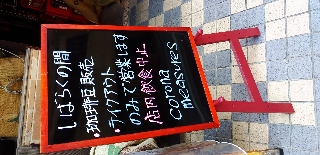 しばらくの間
・珈琲豆販売
・テイクアウト
のみで営業します
店内飲食中止
corona
measures